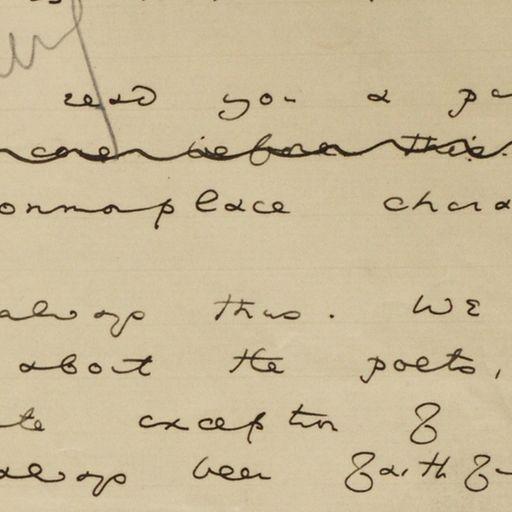 read you a pa
case before this.
onmonplace chara
always thus. We
about the poets,
te exception of
always been faithfu